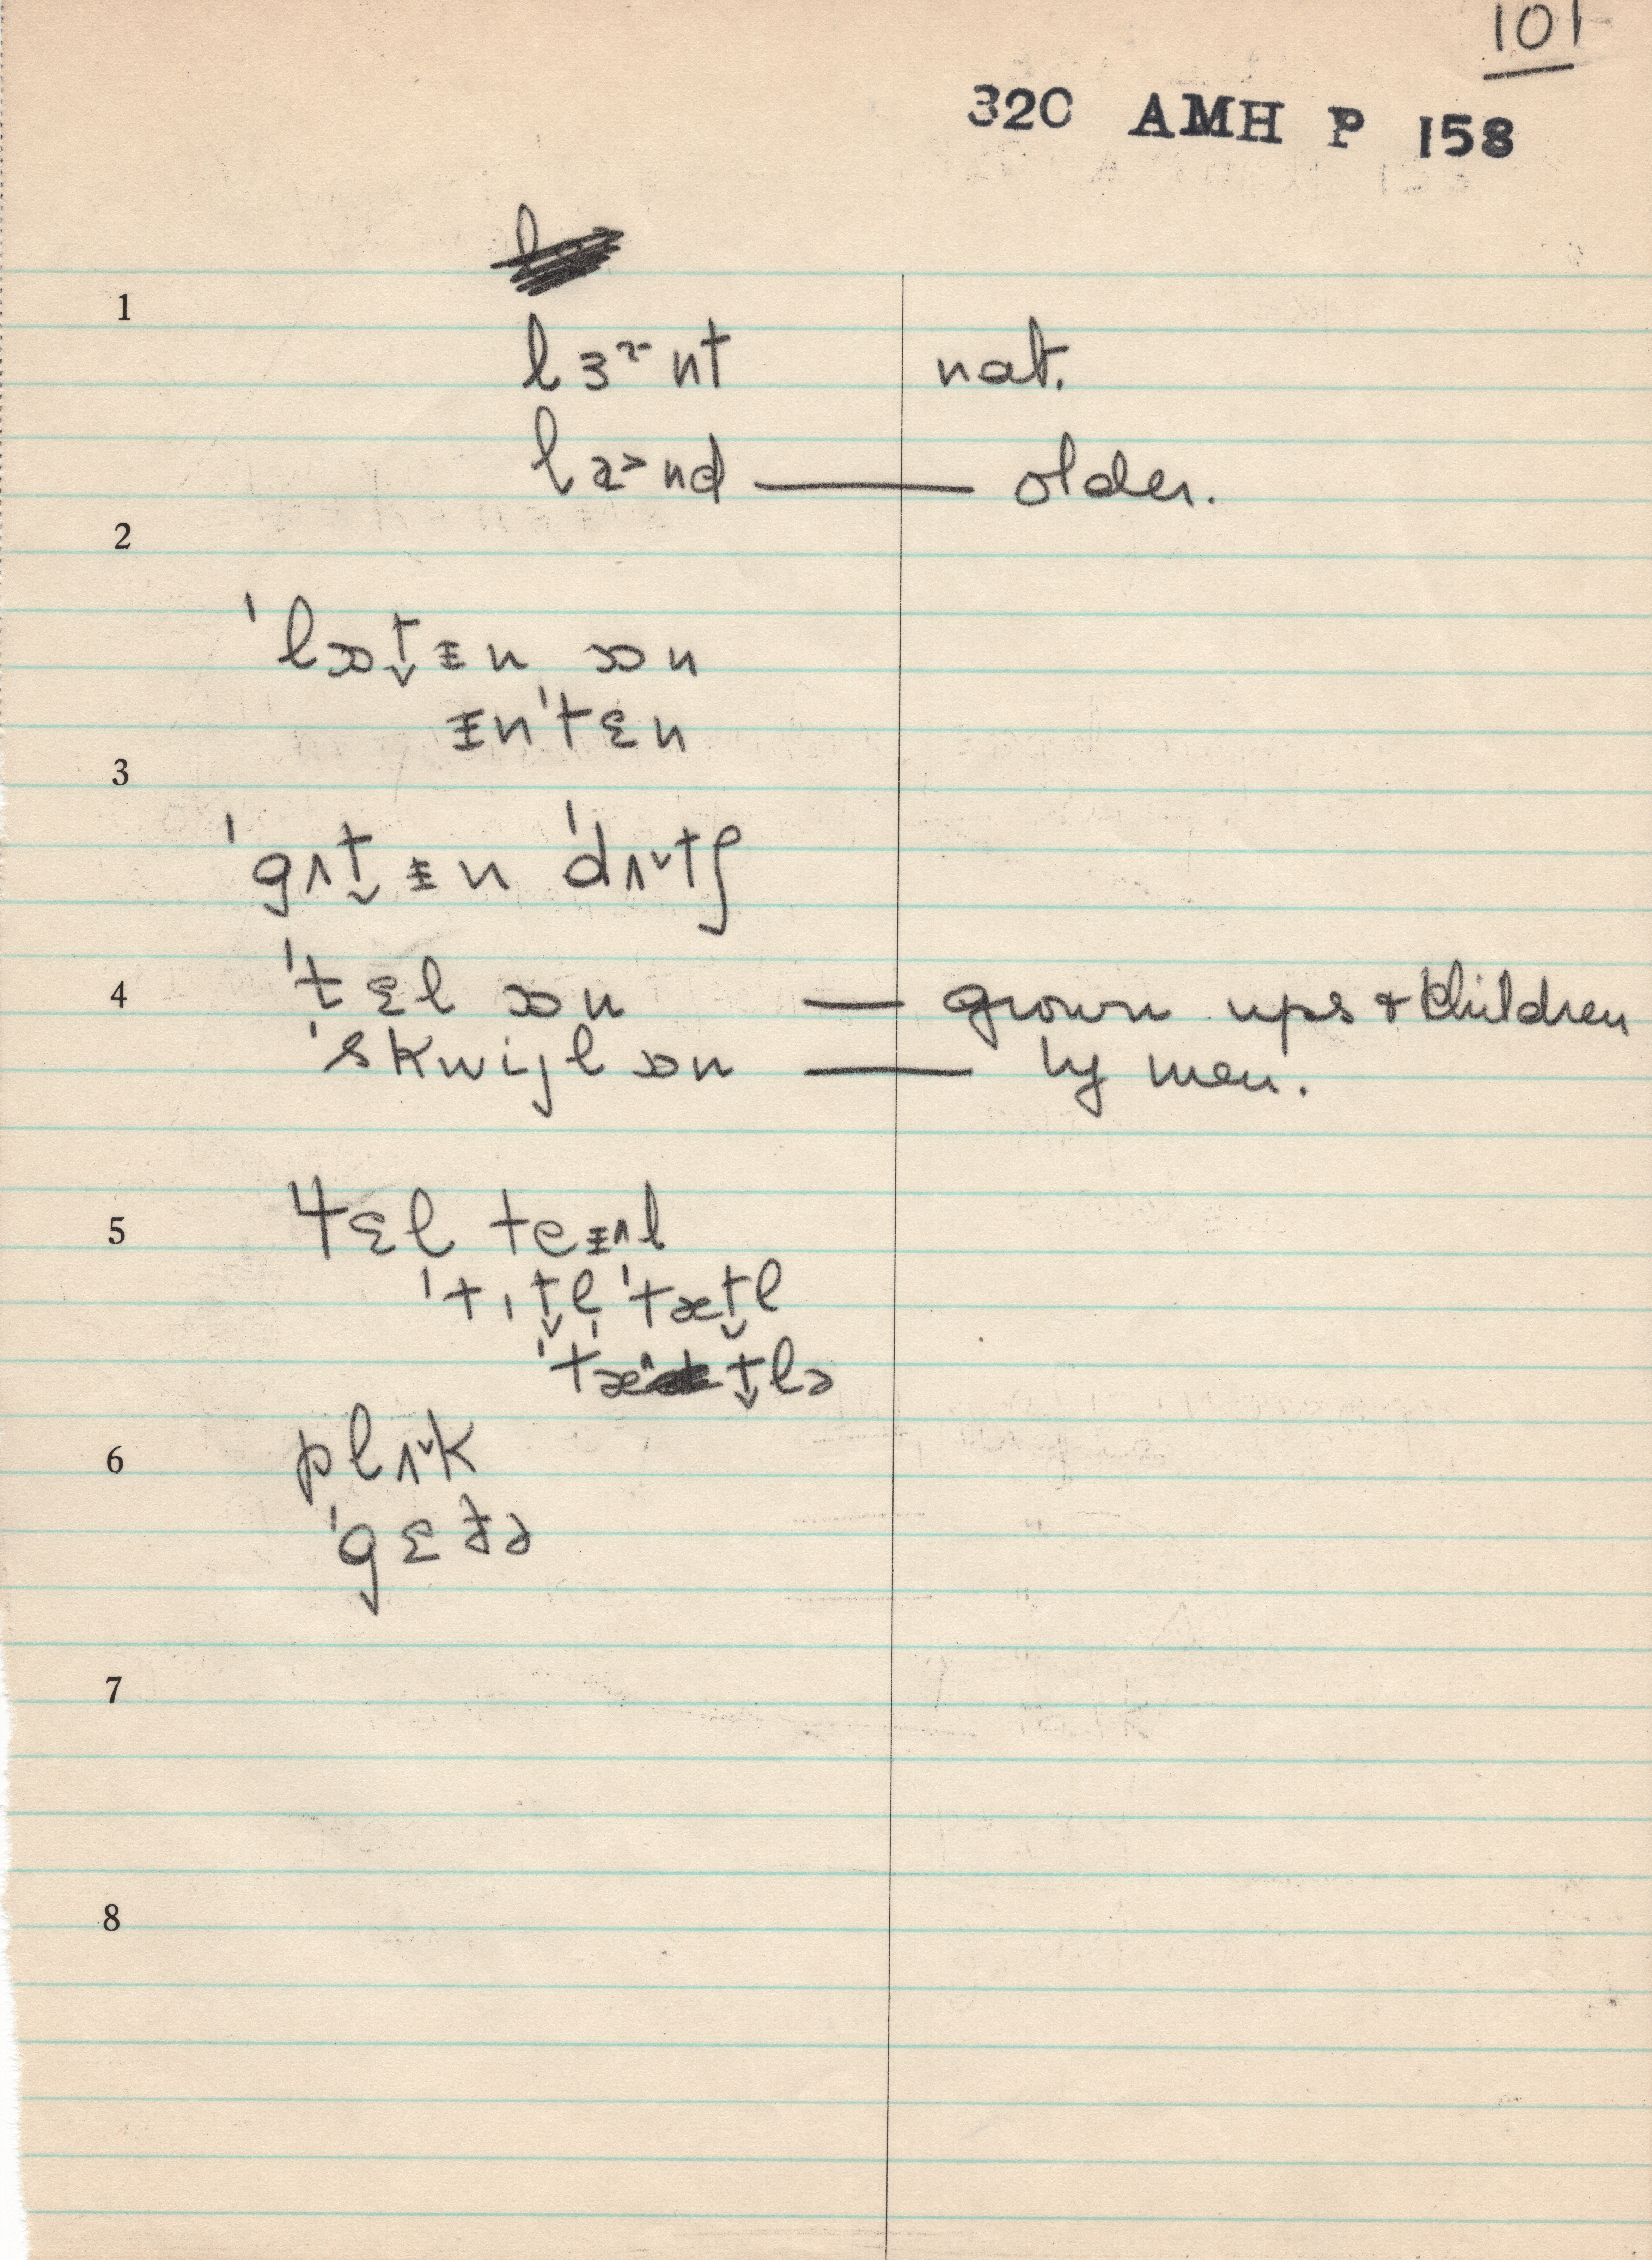 101
32C AMH P 158
1
lɜɚnt nat.
lɚ˃nd — older.
2
ˈlɔt̬ɪn ɔn
ɪnˈtɛn
3
ˈgʌt̬ɪn ˈdʌ˅tʃ
4 ˈtɛl ɔn — grown ups & children
ˈskwijl ɔn — by men.
5 ˈtɛl teɪʌl
ˈtɪt̬l̩ ˈtæt̬l
ˈtæ˄t̬lɚ
6 plʌ˅k
ˈgɛðɚ
7
8